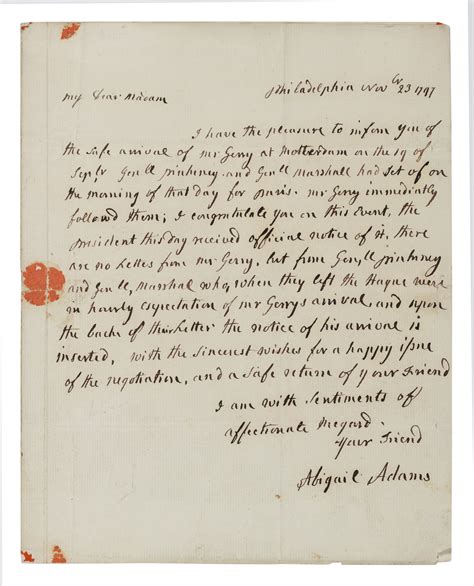 Philadelphia Novbr 23 1797
my Dear Madam
I have the pleasure to inform you of
the safe arrival of mr Gerry at Rotterdam on the 19 of
Sepbr Genll Pinkney and Genll Marshall had set of on
the morning of that day for paris. mr Gerry immediatly
followd them; I congratulate you on this Event, the
president this day received official notice of it. there
are no Letters from mr Gerry, but from Genll pinkney
and Genll Marshal who, when they left the Hague were
in hourly expectation of mr Gerrys arrival and upon
the back of their Letter the notice of his arrival is
inserted, with the sincerest wishes for a happy issue
of the negotiation, and a safe return of your Friend
I am with Sentiments of
affectionate Regard.
Your Friend
Abigail Adams